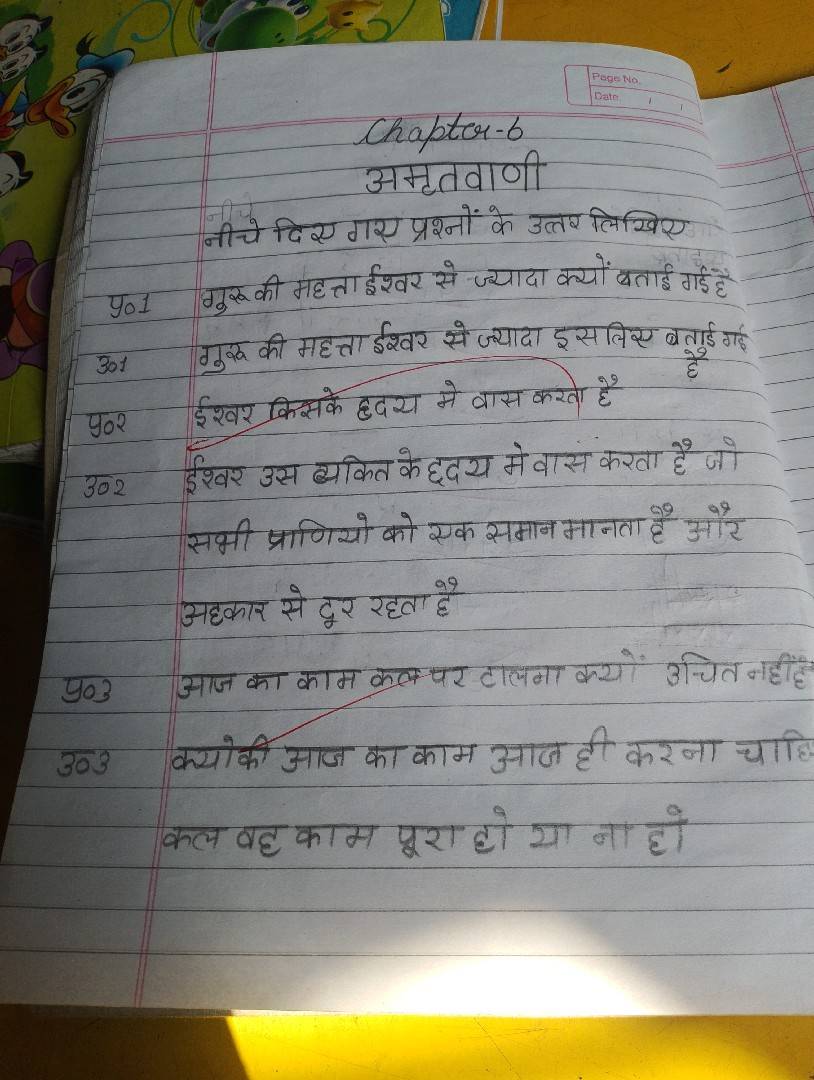 Page No.
Date / /
Chapter-6
अमृतवाणी
नीचे
नीचे दिए गए प्रश्नों के उत्तर लिखिए
प्र०1 गुरू की महत्ता ईश्वर से ज्यादा क्यों बताई गई है
उ०1 गुरू की महत्ता ईश्वर से ज्यादा इसलिए बताई गई
है
प्र०२ ईश्वर किसके हृदय मे वास करता है
उ०२ ईश्वर उस व्यकित के हृदय मे वास करता है जो
सभी प्राणियो को एक समान मानता है और
अहकार से दूर रहता है
प्र०3 आज का काम कल पर टालना कयों उचित नहीं है
उ०3 कयोकी आज का काम आज ही करना चाहि
कल वह काम पूरा हो या ना हो